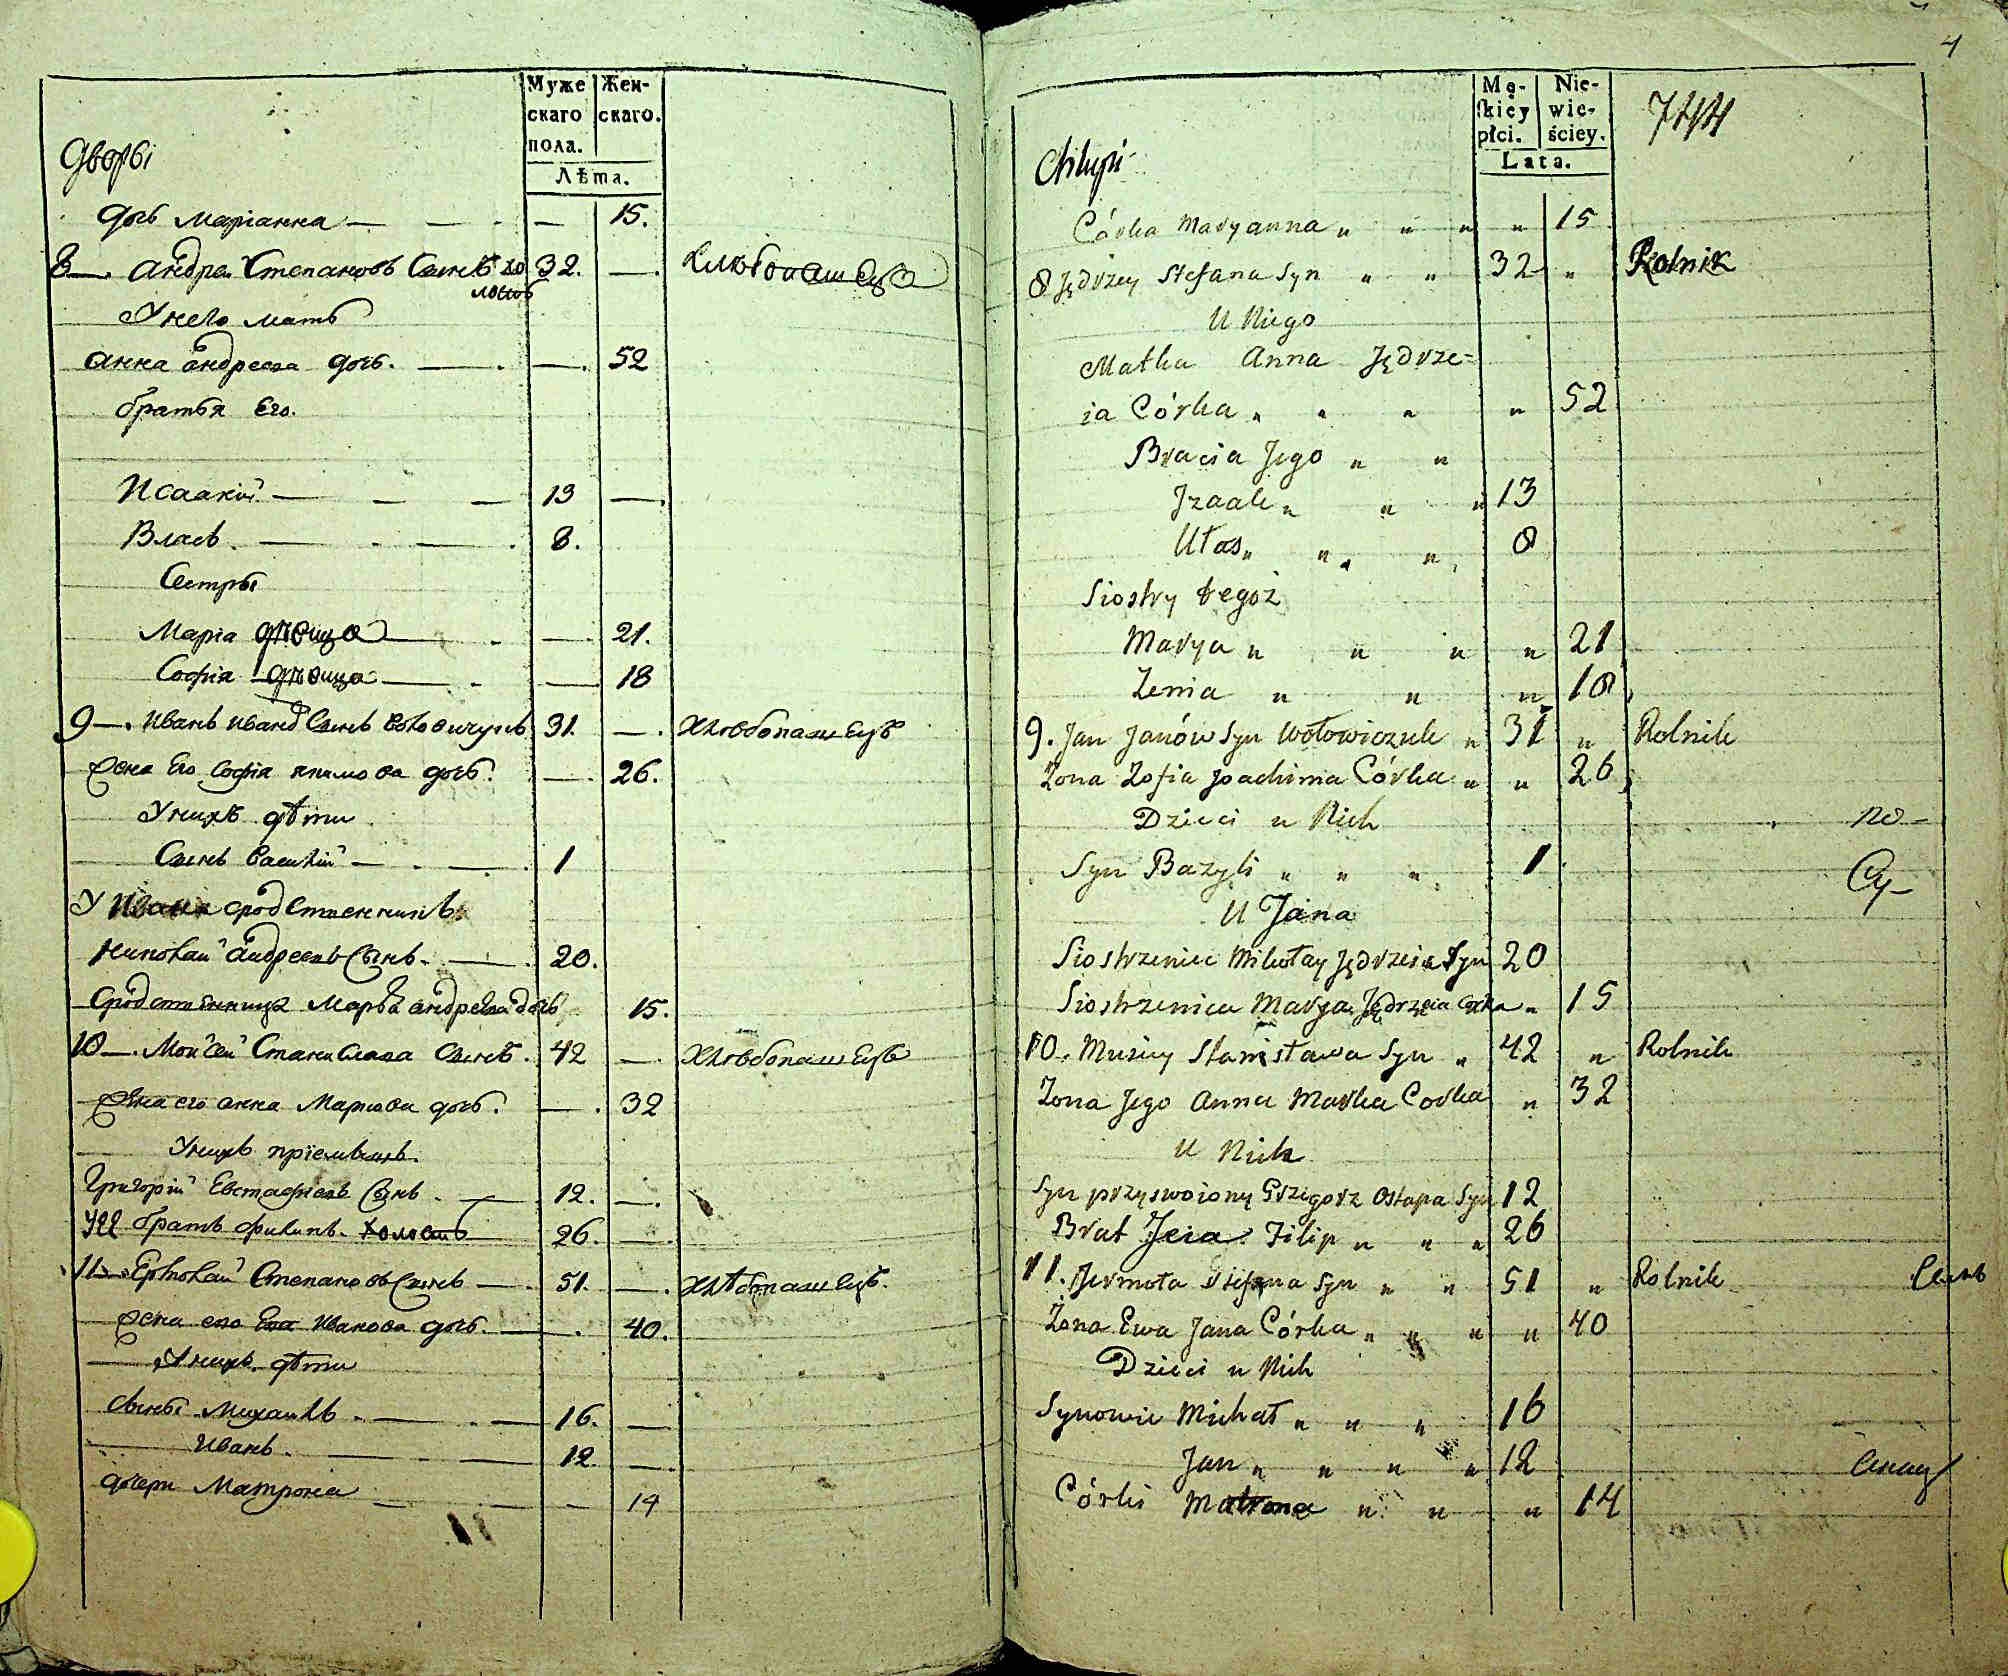 Муже
скаго
пола.
Жен-
скаго.
Лѣта.
Дворы
дочь Марiанна — — — 15.
8 —. Андрей Степановъ Сынъ хо 32. —. Хлѣбопашецъ
лостъ
У него мать
Анна Андреева дочь. — —. 52
братья Его.
Исаакiй — — — 13 —.
Власъ. — — 8.
Сестры
Марiа дѣвица — — 21.
Софiа дѣвица — — 18
9 —. Иванъ Ивановъ Сынъ Воловичукъ 31. —. Хлѣбопашецъ
Жена Его Софiа Якимова дочь. — 26.
У нихъ дѣти
Сынъ Василiй — — 1
У Ивана сродственникъ
Николай Андреевъ Сынъ. — 20.
Сродственница Марья Андреева дочь 15.
10 —. Мойсей Станислава Сынъ. 42 — Хлѣбопашецъ
Жена его Анна Маркова дочь. —. 32
У нихъ прiемышъ.
Григорiй Евстафiевъ Сынъ. — 12. —.
Ее братъ Филипъ. холостъ 26. —
11 —. Ермолай Степановъ Сынъ — 51. —. Хлѣбопашецъ.
Жена его Ева Иванова дочь. — . 40.
— У нихъ дѣти
Сыны Михаилъ. — — 16. —
Иванъ. — — 12. —.
дочери Матрона — — — 14
4
Mę-
skiey
płci.
Nie-
wie-
ściey.
Lata.
744
Chłupi
Córka Maryanna " " " " 15
8 Jędrzey Stefana Syn " " 32 " Rolnik
U Niego
Matka Anna Jędrze=
ia Córka " " " " 52
Bracia Jego " "
Jzaak " " " 13
Ułas " " " 8
Siostry tegoż
Marya " " " " 21
Zenia " " " 18
9. Jan Janów Syn Wołowiczuk " 31 " Rolnik
Żona Zofia Joachima Córka " " 26
Dzieci u Nich
по-
Syn Bazyli " " " 1
Су-
U Jana
Siostrzeniec Mikołay Jędrzeia Syn 20
Siostrzenica Marya Jędrzeia Corka " 15
10. Musiey Stanisława Syn " 42 " Rolnik
Żona Jego Anna Marka Corka " 32
U Nich
Syn przyswoiony Grzegorz Ostapa Syn 12
Brat Jeia Filip " " " 26
11. Jermoła Stefana Syn " " 51 " Rolnik
Żona Ewa Jana Córka " " " " 40
Dzieci u Nich
Synowie Michał " " " 16
Jan " " " " 12
Córki Matrona " " " 14